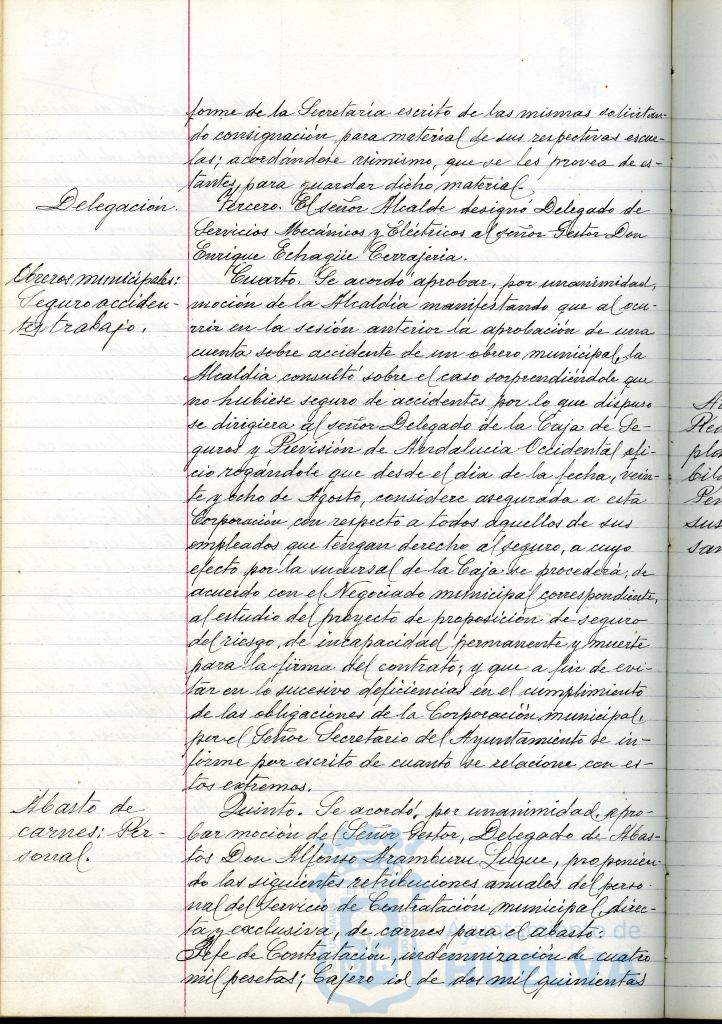 forme de la Secretaría escrito de las mismas solicitan-
do consignación para material de sus respectivas escue-
las; acordándose asimismo, que se les provea de es-
tantes para guardar dicho material.
Delegación.
Tercero. El señor Alcalde designó Delegado de
Servicios Mecánicos y Eléctricos al señor Gestor Don
Enrique Echagüe Cerrajería.
Obreros municipales:
Seguro acciden-
tes trabajo.
Cuarto. Se acordó aprobar, por unanimidad,
moción de la Alcaldía manifestando que al ocu-
rrir en la sesión anterior la aprobación de una
cuenta sobre accidente de un obrero municipal, la
Alcaldía consultó sobre el caso sorprendiéndole que
no hubiese seguro de accidentes por lo que dispuso
se dirigiera al señor Delegado de la Caja de Se-
guros y Previsión de Andalucía Occidental ofi-
cio rogándole que desde el día de la fecha, vein-
te y ocho de Agosto, considere asegurada a esta
Corporación con respecto a todos aquellos de sus
empleados que tengan derecho al seguro, a cuyo
efecto por la sucursal de la Caja se procederá, de
acuerdo con el Negociado municipal correspondiente,
al estudio del proyecto de proposición de seguro
del riesgo, de incapacidad permanente y muerte
para la firma del contrato; y que a fin de evi-
tar en lo sucesivo deficiencias en el cumplimiento
de las obligaciones de la Corporación municipal,
por el Señor Secretario del Ayuntamiento se in-
forme por escrito de cuanto se relacione con es-
tos extremos.
Abasto de
carnes: Per-
sonal.
Quinto. Se acordó, por unanimidad, apro-
bar moción del Señor Gestor, Delegado de Abas-
tos Don Alfonso Aramburu Luque, proponien-
do las siguientes retribuciones anuales del perso-
nal del Servicio de Contratación municipal, direc-
ta y exclusiva, de carnes para el abasto
Jefe de Contratación, indemnización de cuatro
mil pesetas; Cajero id de dos mil quinientas
Ayuntamiento de
HUELVA